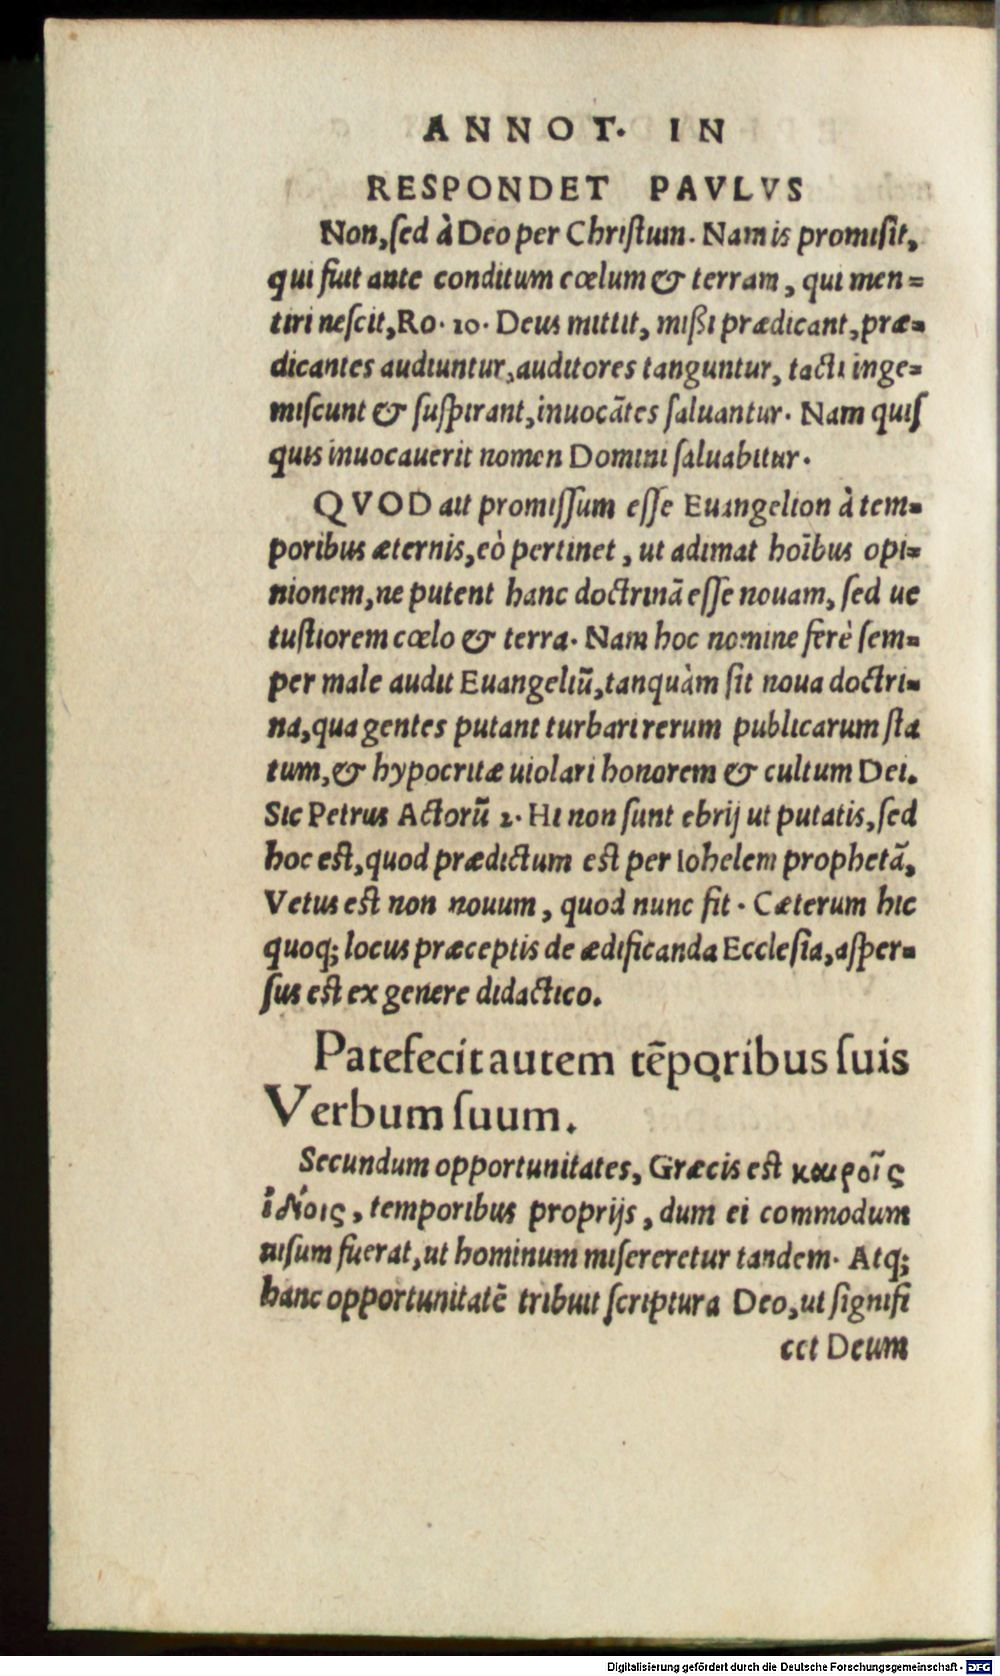 ANNOT. IN
RESPONDET PAVLVS
Non, ſed à Deo per Chriſtum. Nam is promiſit,
qui fuit ante conditum cœlum & terram, qui men=
tiri neſcit, Ro. 10. Deus mittit, mißi prædicant, præ=
dicantes audiuntur, auditores tanguntur, tacti inge=
miſcunt & ſuſpirant, inuocātes ſaluantur. Nam quiſ
quis inuocauerit nomen Domini ſaluabitur.
QVOD ait promiſſum eſſe Euangelion à tem=
poribus æternis, eò pertinet, ut adimat hoībus opi=
nionem, ne putent hanc doctrinā eſſe nouam, ſed ue
tuſtiorem cœlo & terra. Nam hoc nomine ferè ſem=
per male audit Euangeliū, tanquàm ſit noua doctri=
na, qua gentes putant turbari rerum publicarum ſta
tum, & hypocritæ uiolari honorem & cultum Dei.
Sic Petrus Actorū 2. Hi non ſunt ebrij ut putatis, ſed
hoc eſt, quod prædictum eſt per Iohelem prophetā,
Vetus eſt non nouum, quod nunc fit. Cæterum hic
quoq; locus præceptis de ædificanda Eccleſia, aſper=
ſus eſt ex genere didactico.
Patefecit autem tēporibus ſuis
Verbum ſuum.
Secundum opportunitates, Græcis eſt καιροῖς
ἰδίοις, temporibus proprijs, dum ei commodum
uiſum fuerat, ut hominum miſereretur tandem. Atq;
hanc opportunitatē tribuit ſcriptura Deo, ut ſignifi
cet Deum
Digitalisierung gefördert durch die Deutsche Forschungsgemeinschaft - DFG